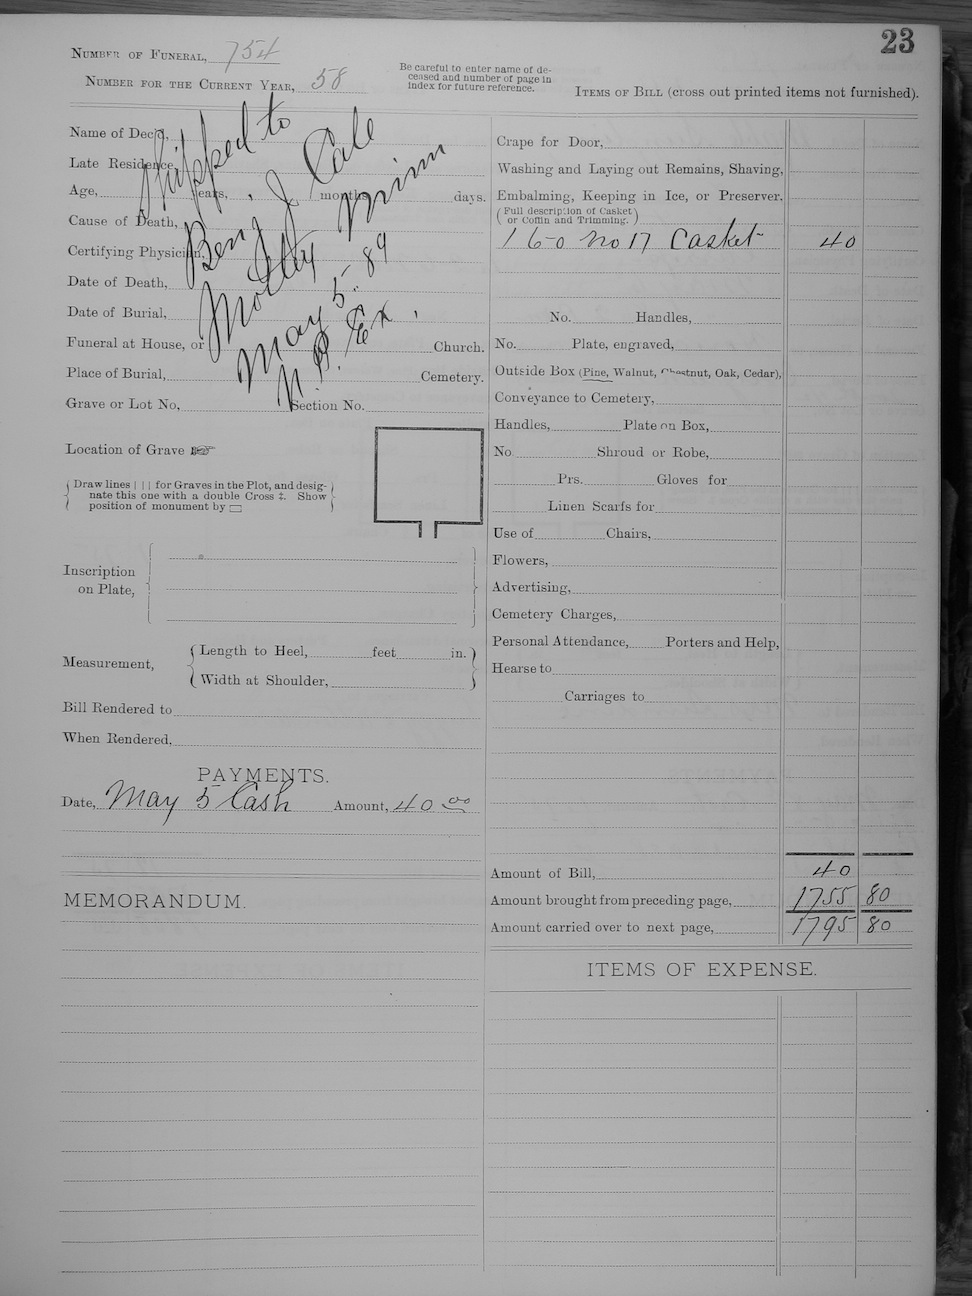 23
NUMBER OF FUNERAL, 754
NUMBER FOR THE CURRENT YEAR, 58
Be careful to enter name of de-
ceased and number of page in
index for future reference.
ITEMS OF BILL (cross out printed items not furnished).
Name of Dec'd,
Late Residence,
Age, years, months, days.
Cause of Death,
Certifying Physician,
Date of Death,
Date of Burial,
Funeral at House, or Church.
Place of Burial, Cemetery.
Grave or Lot No, Section No.
Shipped to
Benj J Cale
Motley Minn
May 5. 89
N.P. Ex.
Location of Grave ☞
Draw lines | | | for Graves in the Plot, and desig-
nate this one with a double Cross ‡. Show
position of monument by ▭
Inscription
on Plate,
Measurement,
Length to Heel, feet in.
Width at Shoulder,
Bill Rendered to
When Rendered,
PAYMENTS.
Date, May 5 Cash Amount, 40 00
MEMORANDUM.
Crape for Door,
Washing and Laying out Remains, Shaving,
Embalming, Keeping in Ice, or Preserver.
(Full description of Casket
or Coffin and Trimming.)
1 6-0 No 17 Casket 40
No. Handles,
No. Plate, engraved,
Outside Box (Pine, Walnut, Chestnut, Oak, Cedar),
Conveyance to Cemetery,
Handles, Plate on Box,
No. Shroud or Robe,
Prs. Gloves for
Linen Scarfs for
Use of Chairs,
Flowers,
Advertising,
Cemetery Charges,
Personal Attendance, Porters and Help,
Hearse to
Carriages to
Amount of Bill, 40
Amount brought from preceding page, 1755 80
Amount carried over to next page, 1795 80
ITEMS OF EXPENSE.